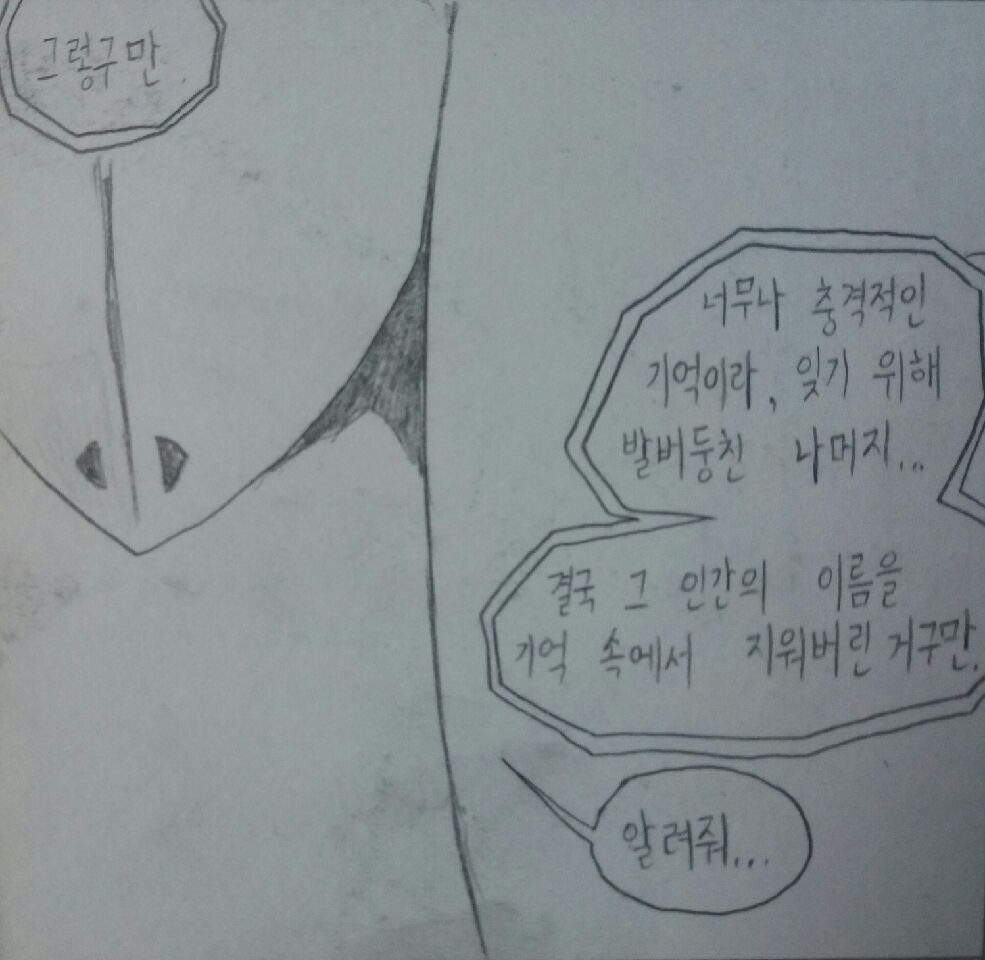 그렇구만.
너무나 충격적인
기억이라, 잊기 위해
발버둥친 나머지...
결국 그 인간의 이름을
기억 속에서 지워버린 거구만.
알려줘...